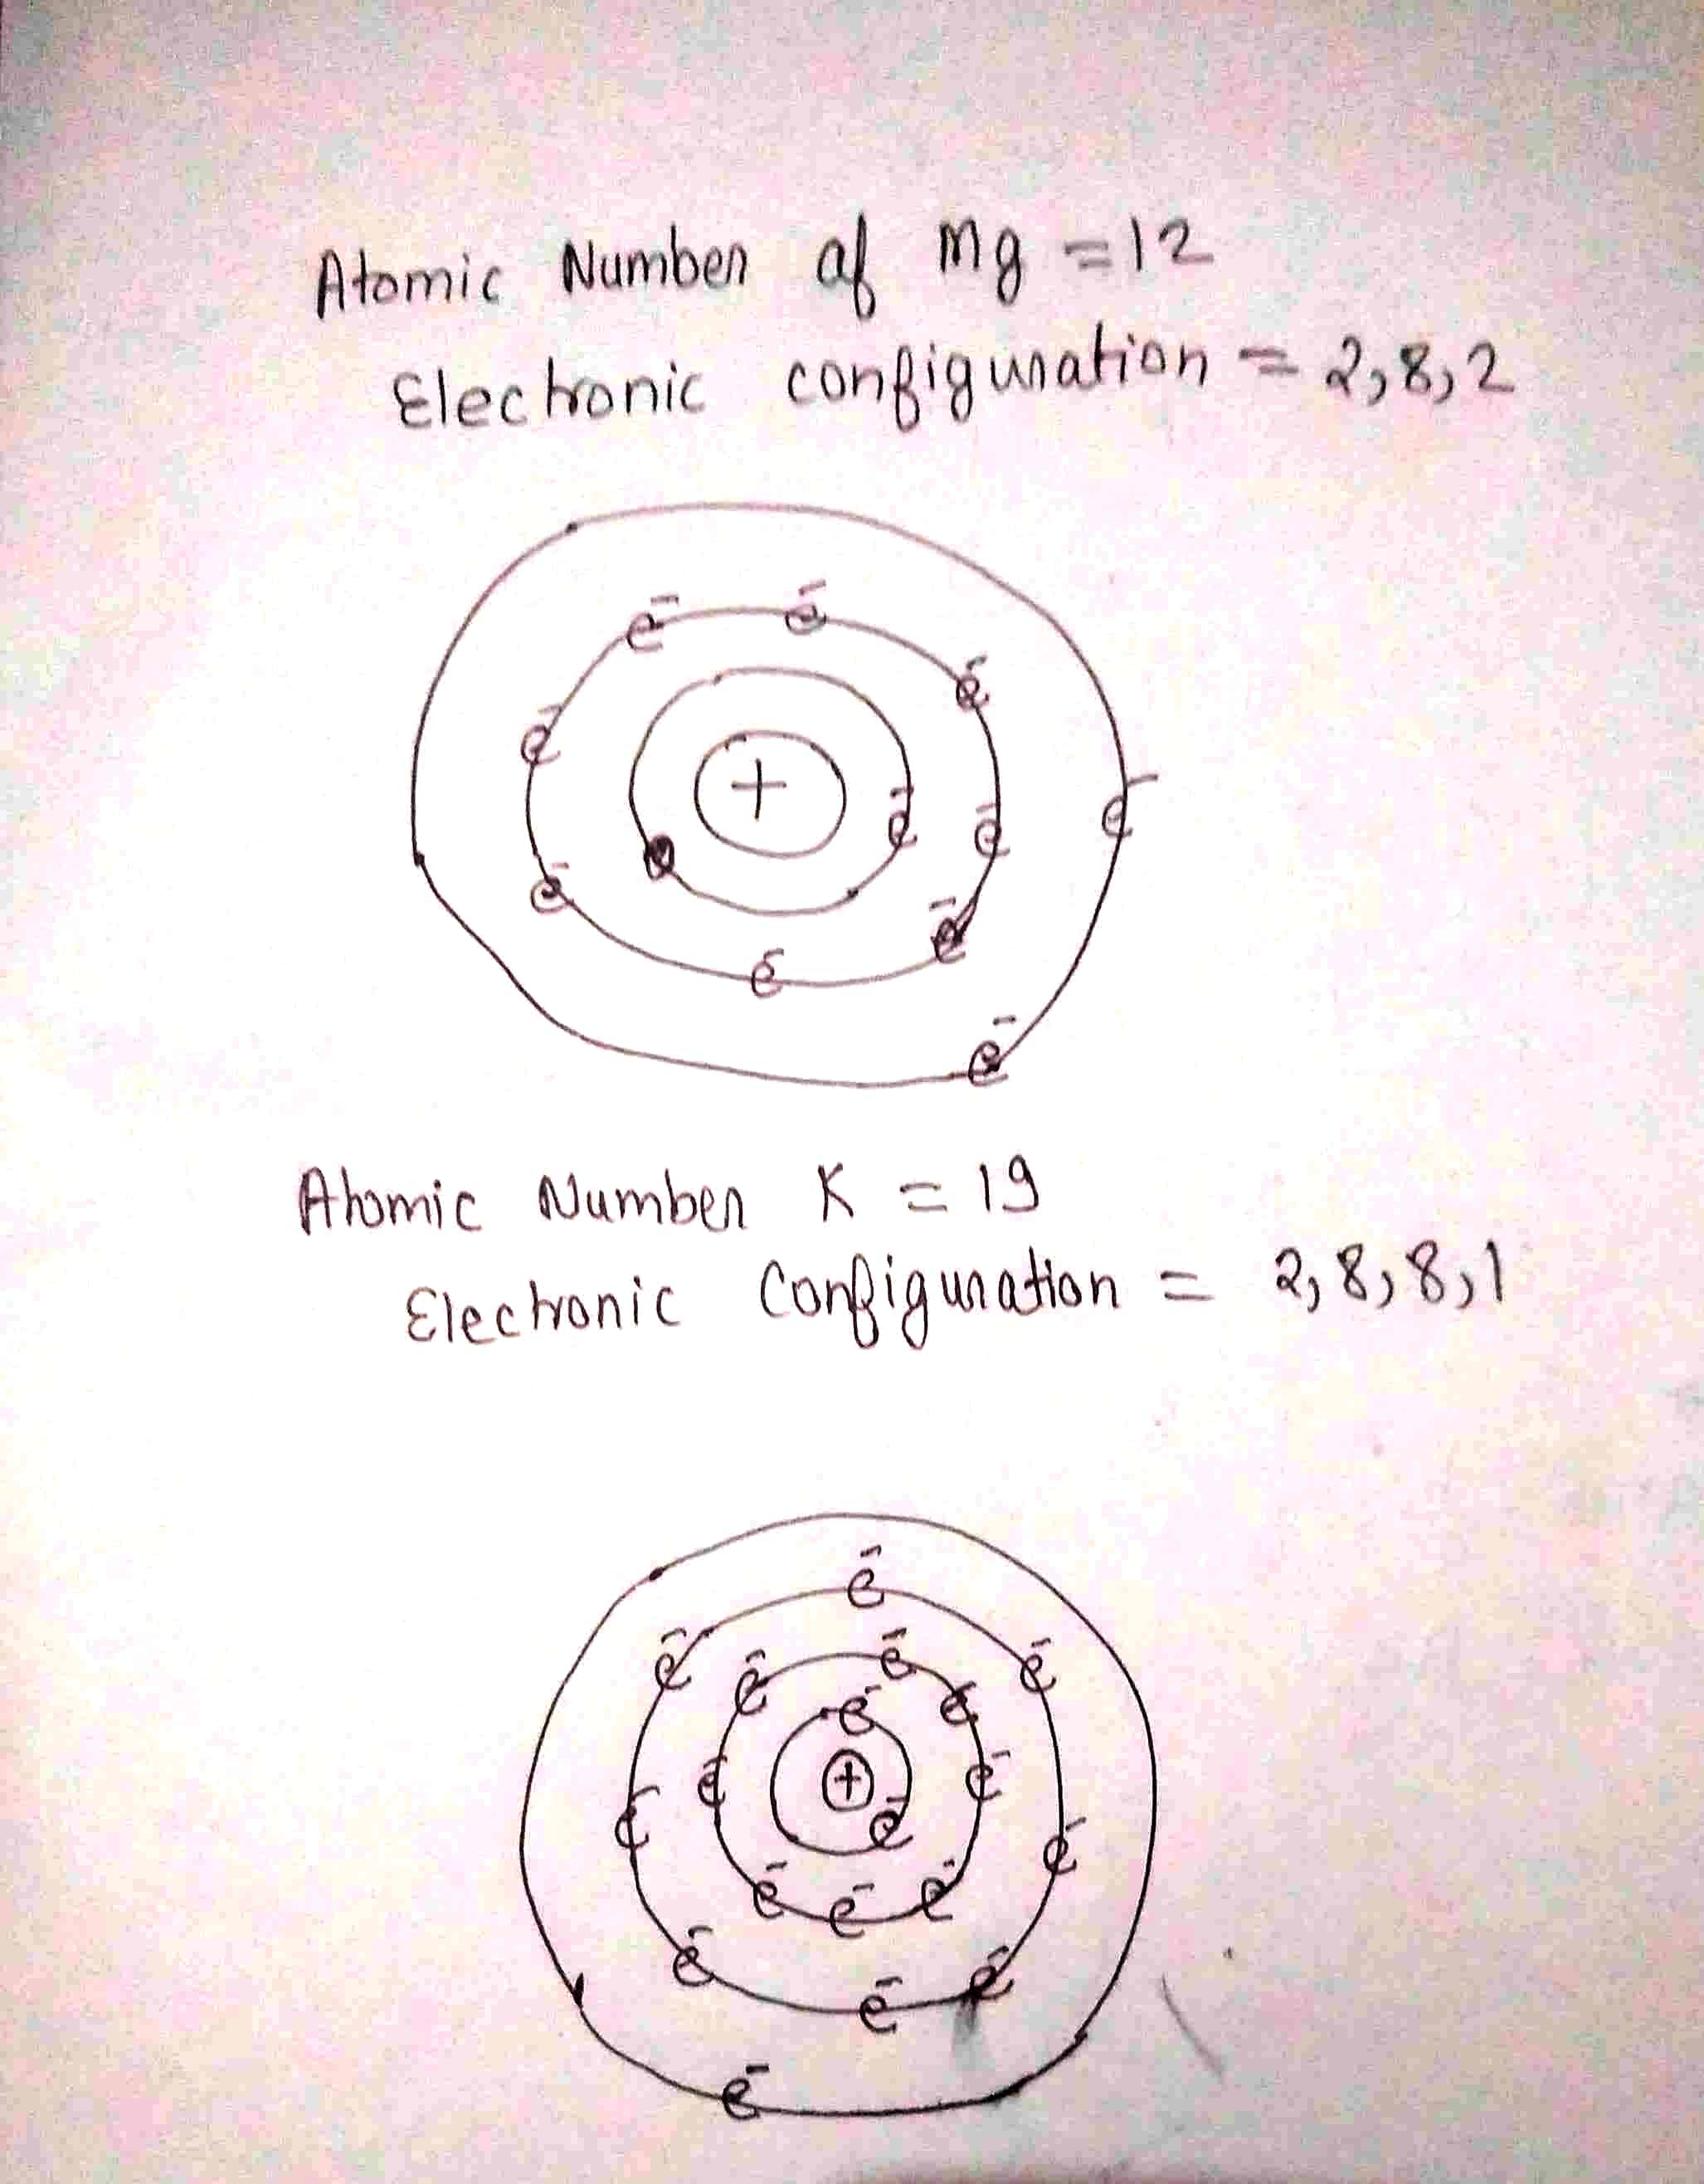 Atomic Number of Mg = 12
Electronic configuration = 2,8,2
e⁻ e⁻
e⁻
e⁻
+
e⁻ e⁻ e⁻
e⁻
e⁻
e⁻
e⁻
Atomic Number K = 19
Electronic Configuration = 2,8,8,1
e⁻
e⁻ e⁻ e⁻
e⁻ e⁻ e⁻
e⁻ + e⁻
e⁻ e⁻ e⁻
e⁻ e⁻ e⁻
e⁻ e⁻
e⁻
e⁻